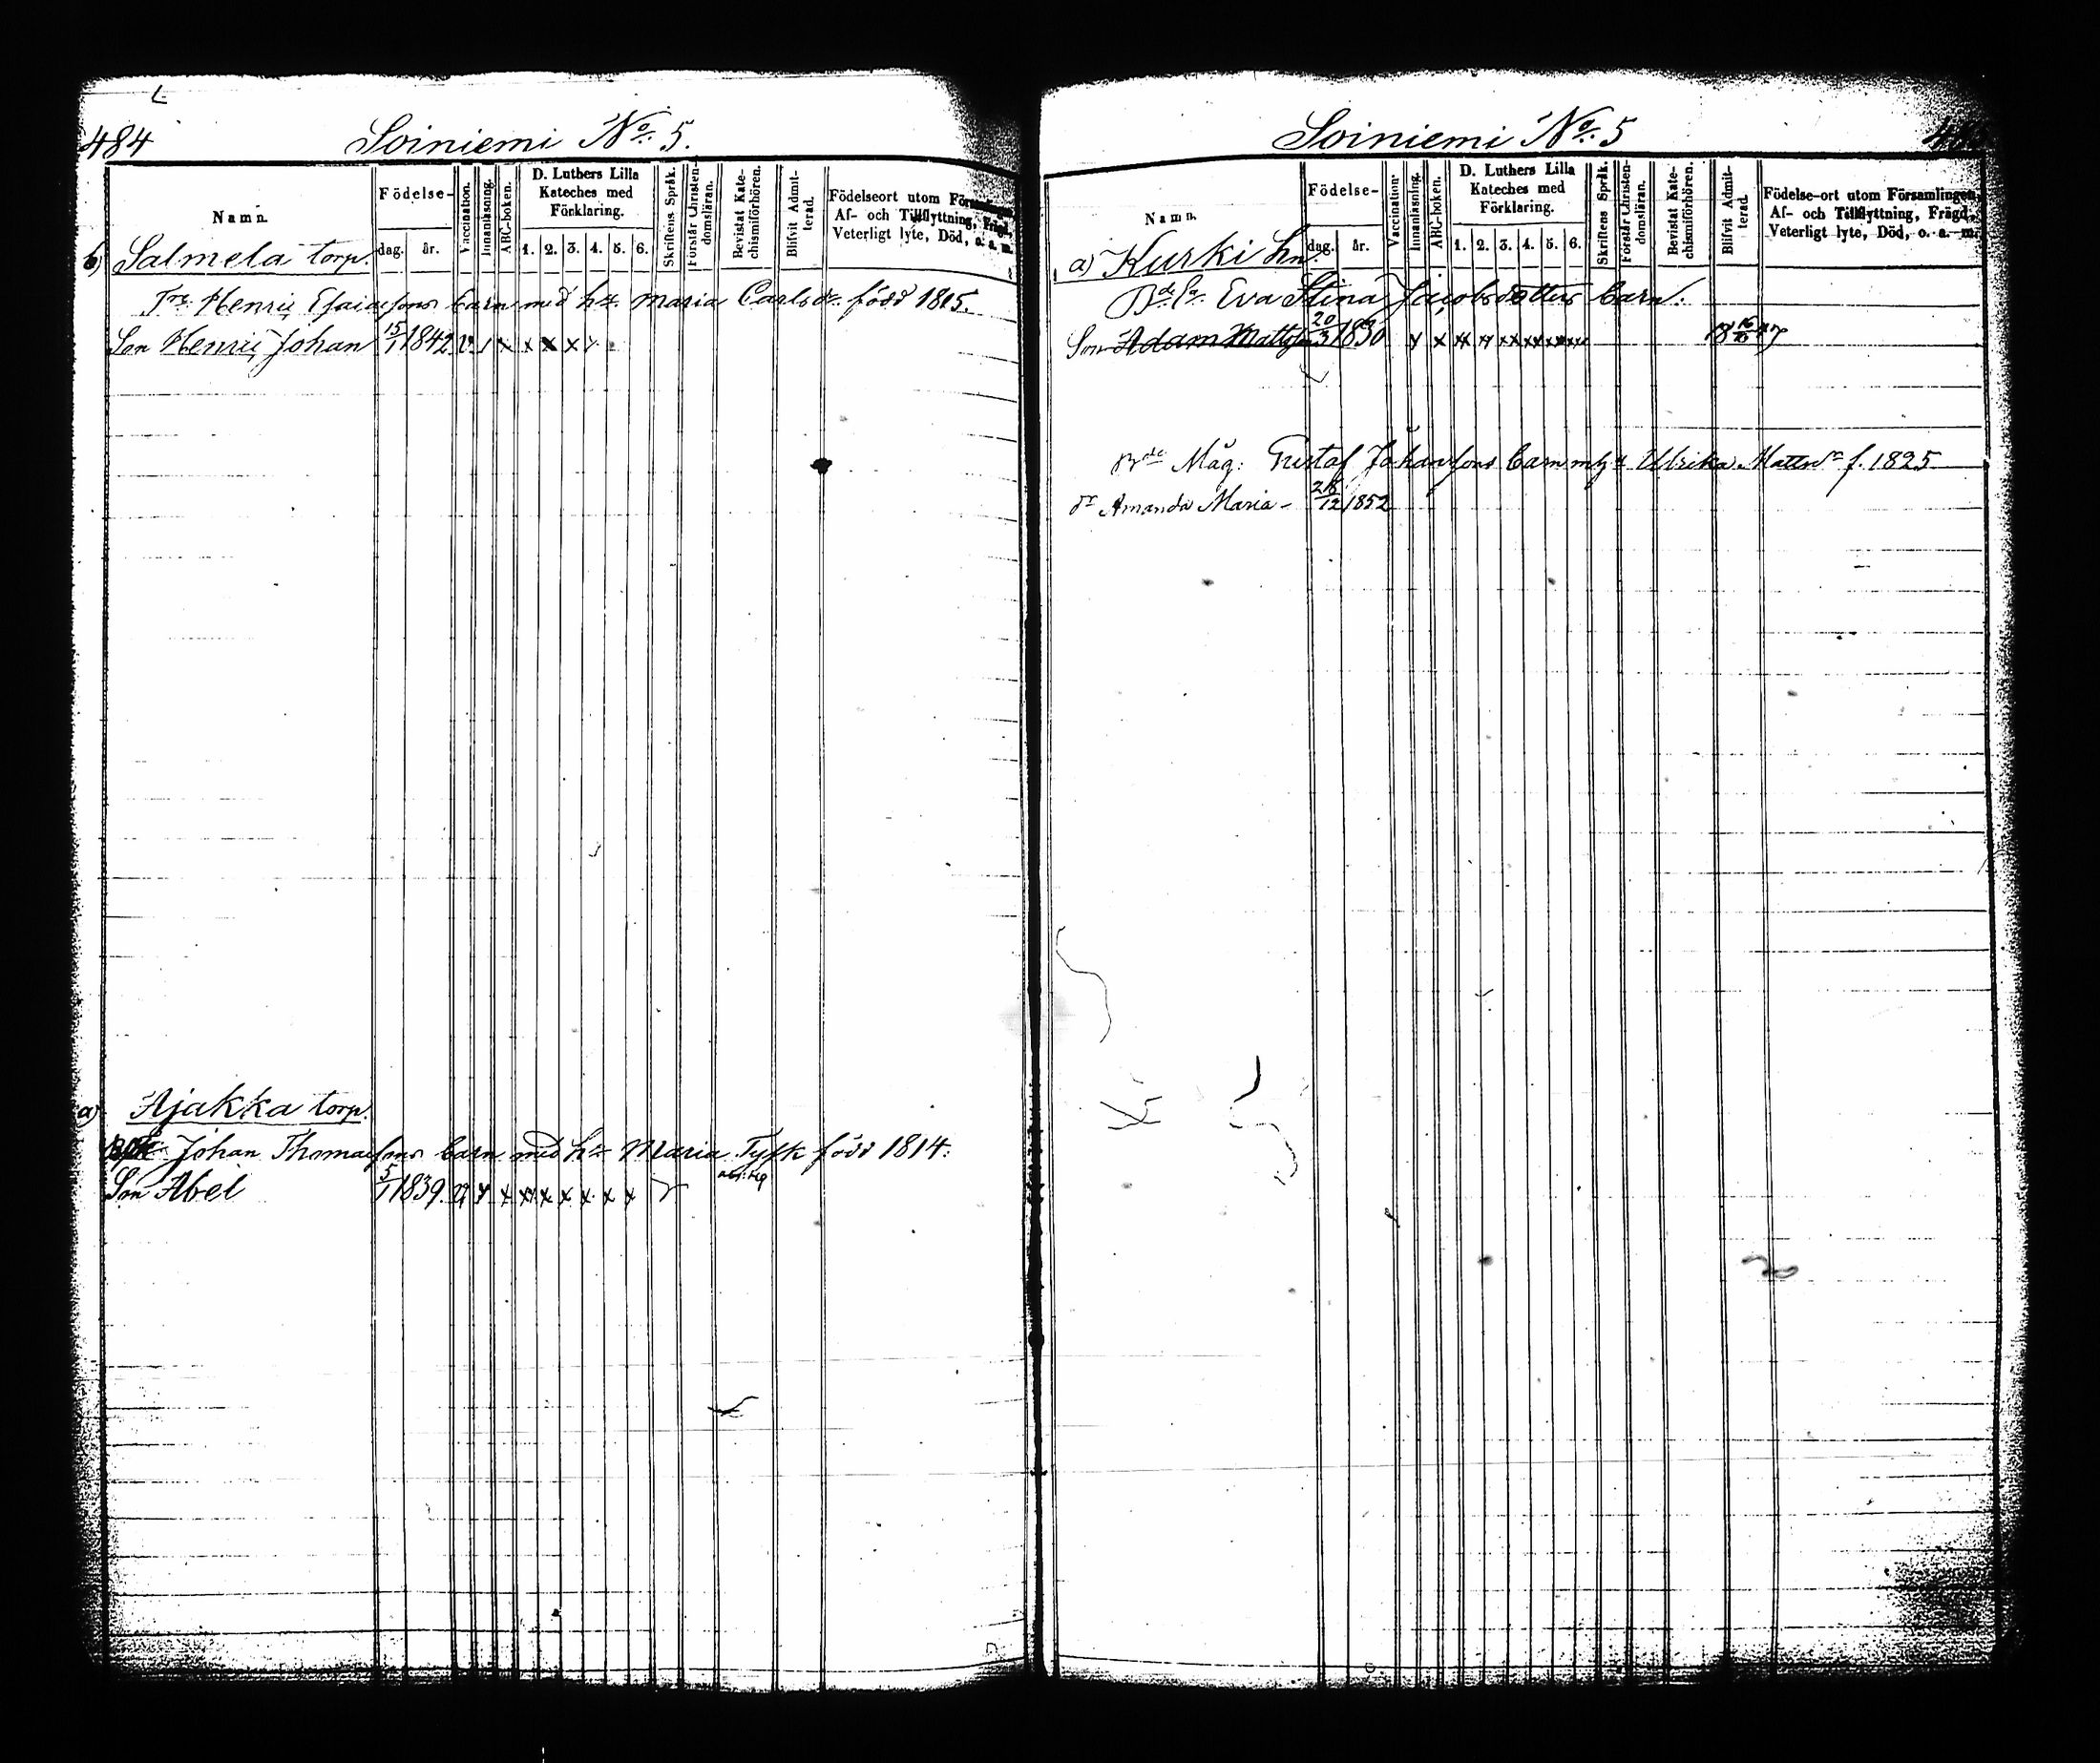 484
Soiniemi No. 5.
Namn.
Födelse-
dag.
år.
Vaccination.
Innanläsning.
ABC-boken.
D. Luthers Lilla
Kateches med
Förklaring.
1. 2. 3. 4. 5. 6.
Skriftens Språk.
Förstår Christen-
domsläran.
Bevistat Kate-
chismiförhören.
Blifvit Admit-
terad.
Födelseort utom Församlingen,
Af- och Tillflyttning, Frägd,
Veterligt lyte, Död, o. a. m.
b) Salmela torp.
Henric Esaiasons barn med h. Maria Carlsdr. född 1815.
Son Henric Johan 15/1 1842 v. / x x x x
a) Ajakka torp.
Johan Thomassons barn med h. Maria Tysk född 1814.
Son Abel 5/1 1839. v x x x x x x x
Soiniemi No. 5
Namn.
Födelse-
dag.
år.
Vaccination.
Innanläsning.
ABC-boken.
D. Luthers Lilla
Kateches med
Förklaring.
1. 2. 3. 4. 5. 6.
Skriftens Språk.
Förstår Christen-
domsläran.
Bevistat Kate-
chismiförhören.
Blifvit Admit-
terad.
Födelse-ort utom Församlingen,
Af- och Tillflyttning, Frägd,
Veterligt lyte, Död, o. a. m.
a) Kurki hn.
Eva Stina Jacobsdotters barn.
Son Adam Mattsson 20/3 1830
Måg: Gustaf Johanssons barn m h Ulrika Mattsdr f. 1825
dr Amanda Maria - /12 1852